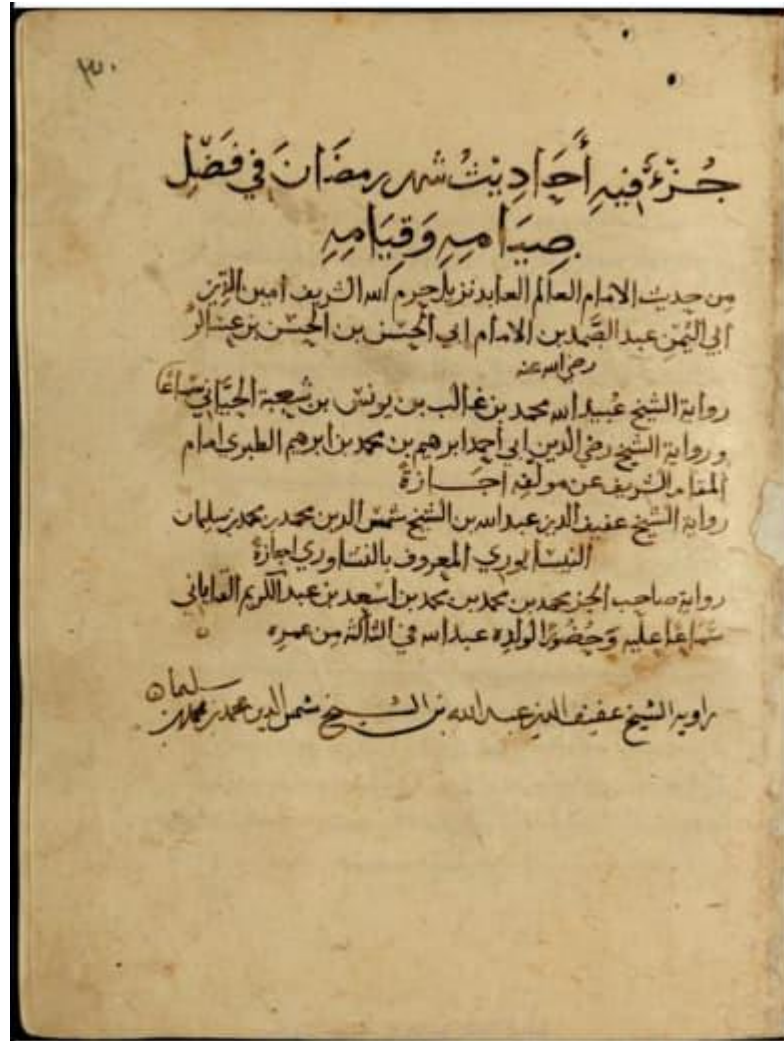 ٣٠
جُزْءٌ فِيهِ أَحَادِيثُ شهر رمضَانَ فِي فَضْلِ
صِيَامِهِ وَقِيَامِهِ
مِن حديث الامام العالم العابد نزيل حرم الله الشريف امين الدين
ابي اليُمْنِ عبد الصَّمد بن الامام ابي الحسَن بن الحسَن بن عسَاكر
رضي الله عنه
رواية الشيخ عُبيد الله محمد بن غالب بن يونس بن شعبة الجيَّاني سَمَاعًا
ورواية الشيخ رضي الدين ابي احمد ابرهيم بن محمد بن ابرهيم الطبري امام
المقام الشريف عن مولفه اجَازةً
رواية الشيخ عفيف الدين عبد الله بن الشيخ شمس الدين محمد بن محمد بن سليمان
النيسابوري المعروف بالنشاوري اجازةً
رواية صاحب الجز محمد بن محمد بن محمد بن اسعد بن عبد الكريم القاياتي
سَمَاعًا عليه وَحُضُورًا لولدِه عبد الله في الثالثة مِن عمره
راويه الشيخ عفيف الدين عبد الله بن الشيخ شمس الدين محمد بن محمد بن
سليمان